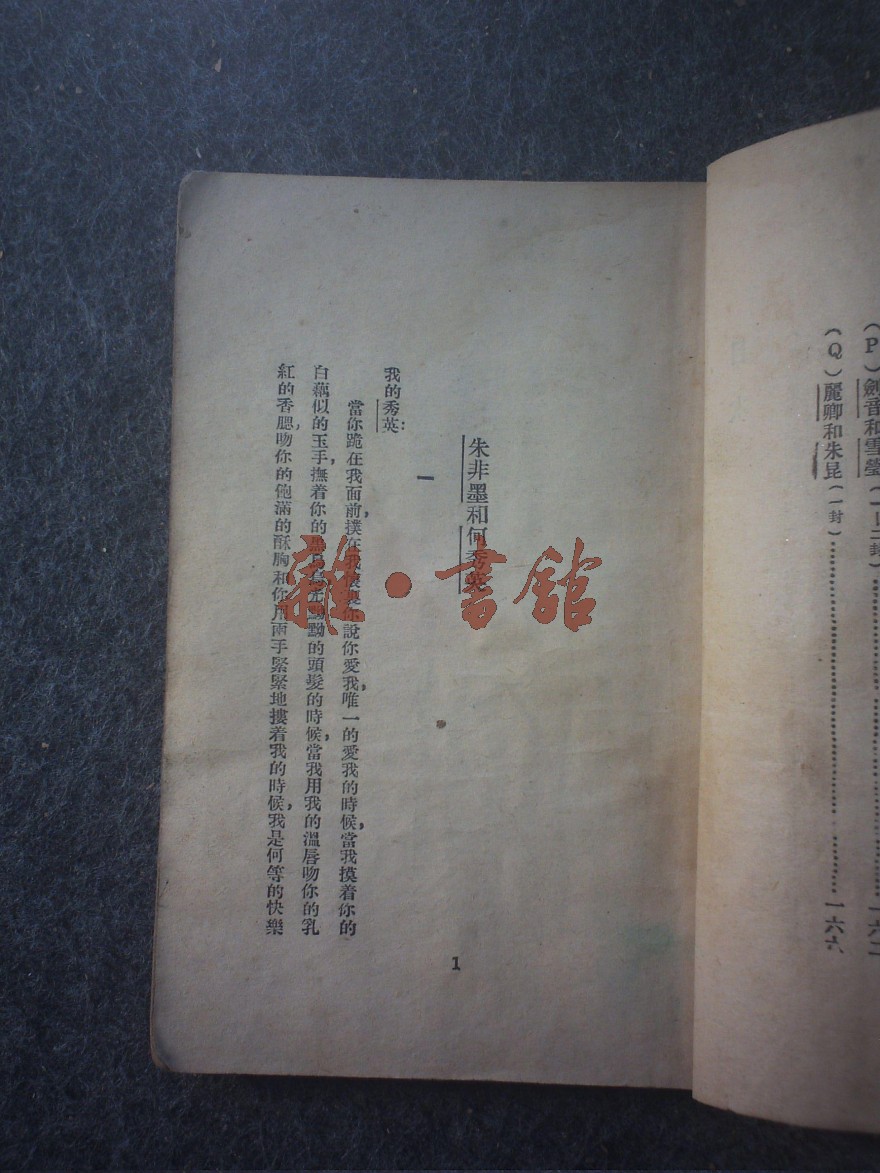 (P)劍音和雪瑩(一—三封)……一六二
(Q)麗卿和朱昆(一封)……一六六
朱非墨和何秀英
一
我的秀英:
當你跪在我面前,撲在我懷裏你說你愛我,唯一的愛我的時候,當我摸着你的
白藕似的玉手,撫着你的黝黝的頭髮的時候,當我用我的溫唇吻你的乳
紅的香腮,吻你的飽滿的酥胸和你用兩手緊緊地摟着我的時候,我是何等的快樂
1
雜·書館